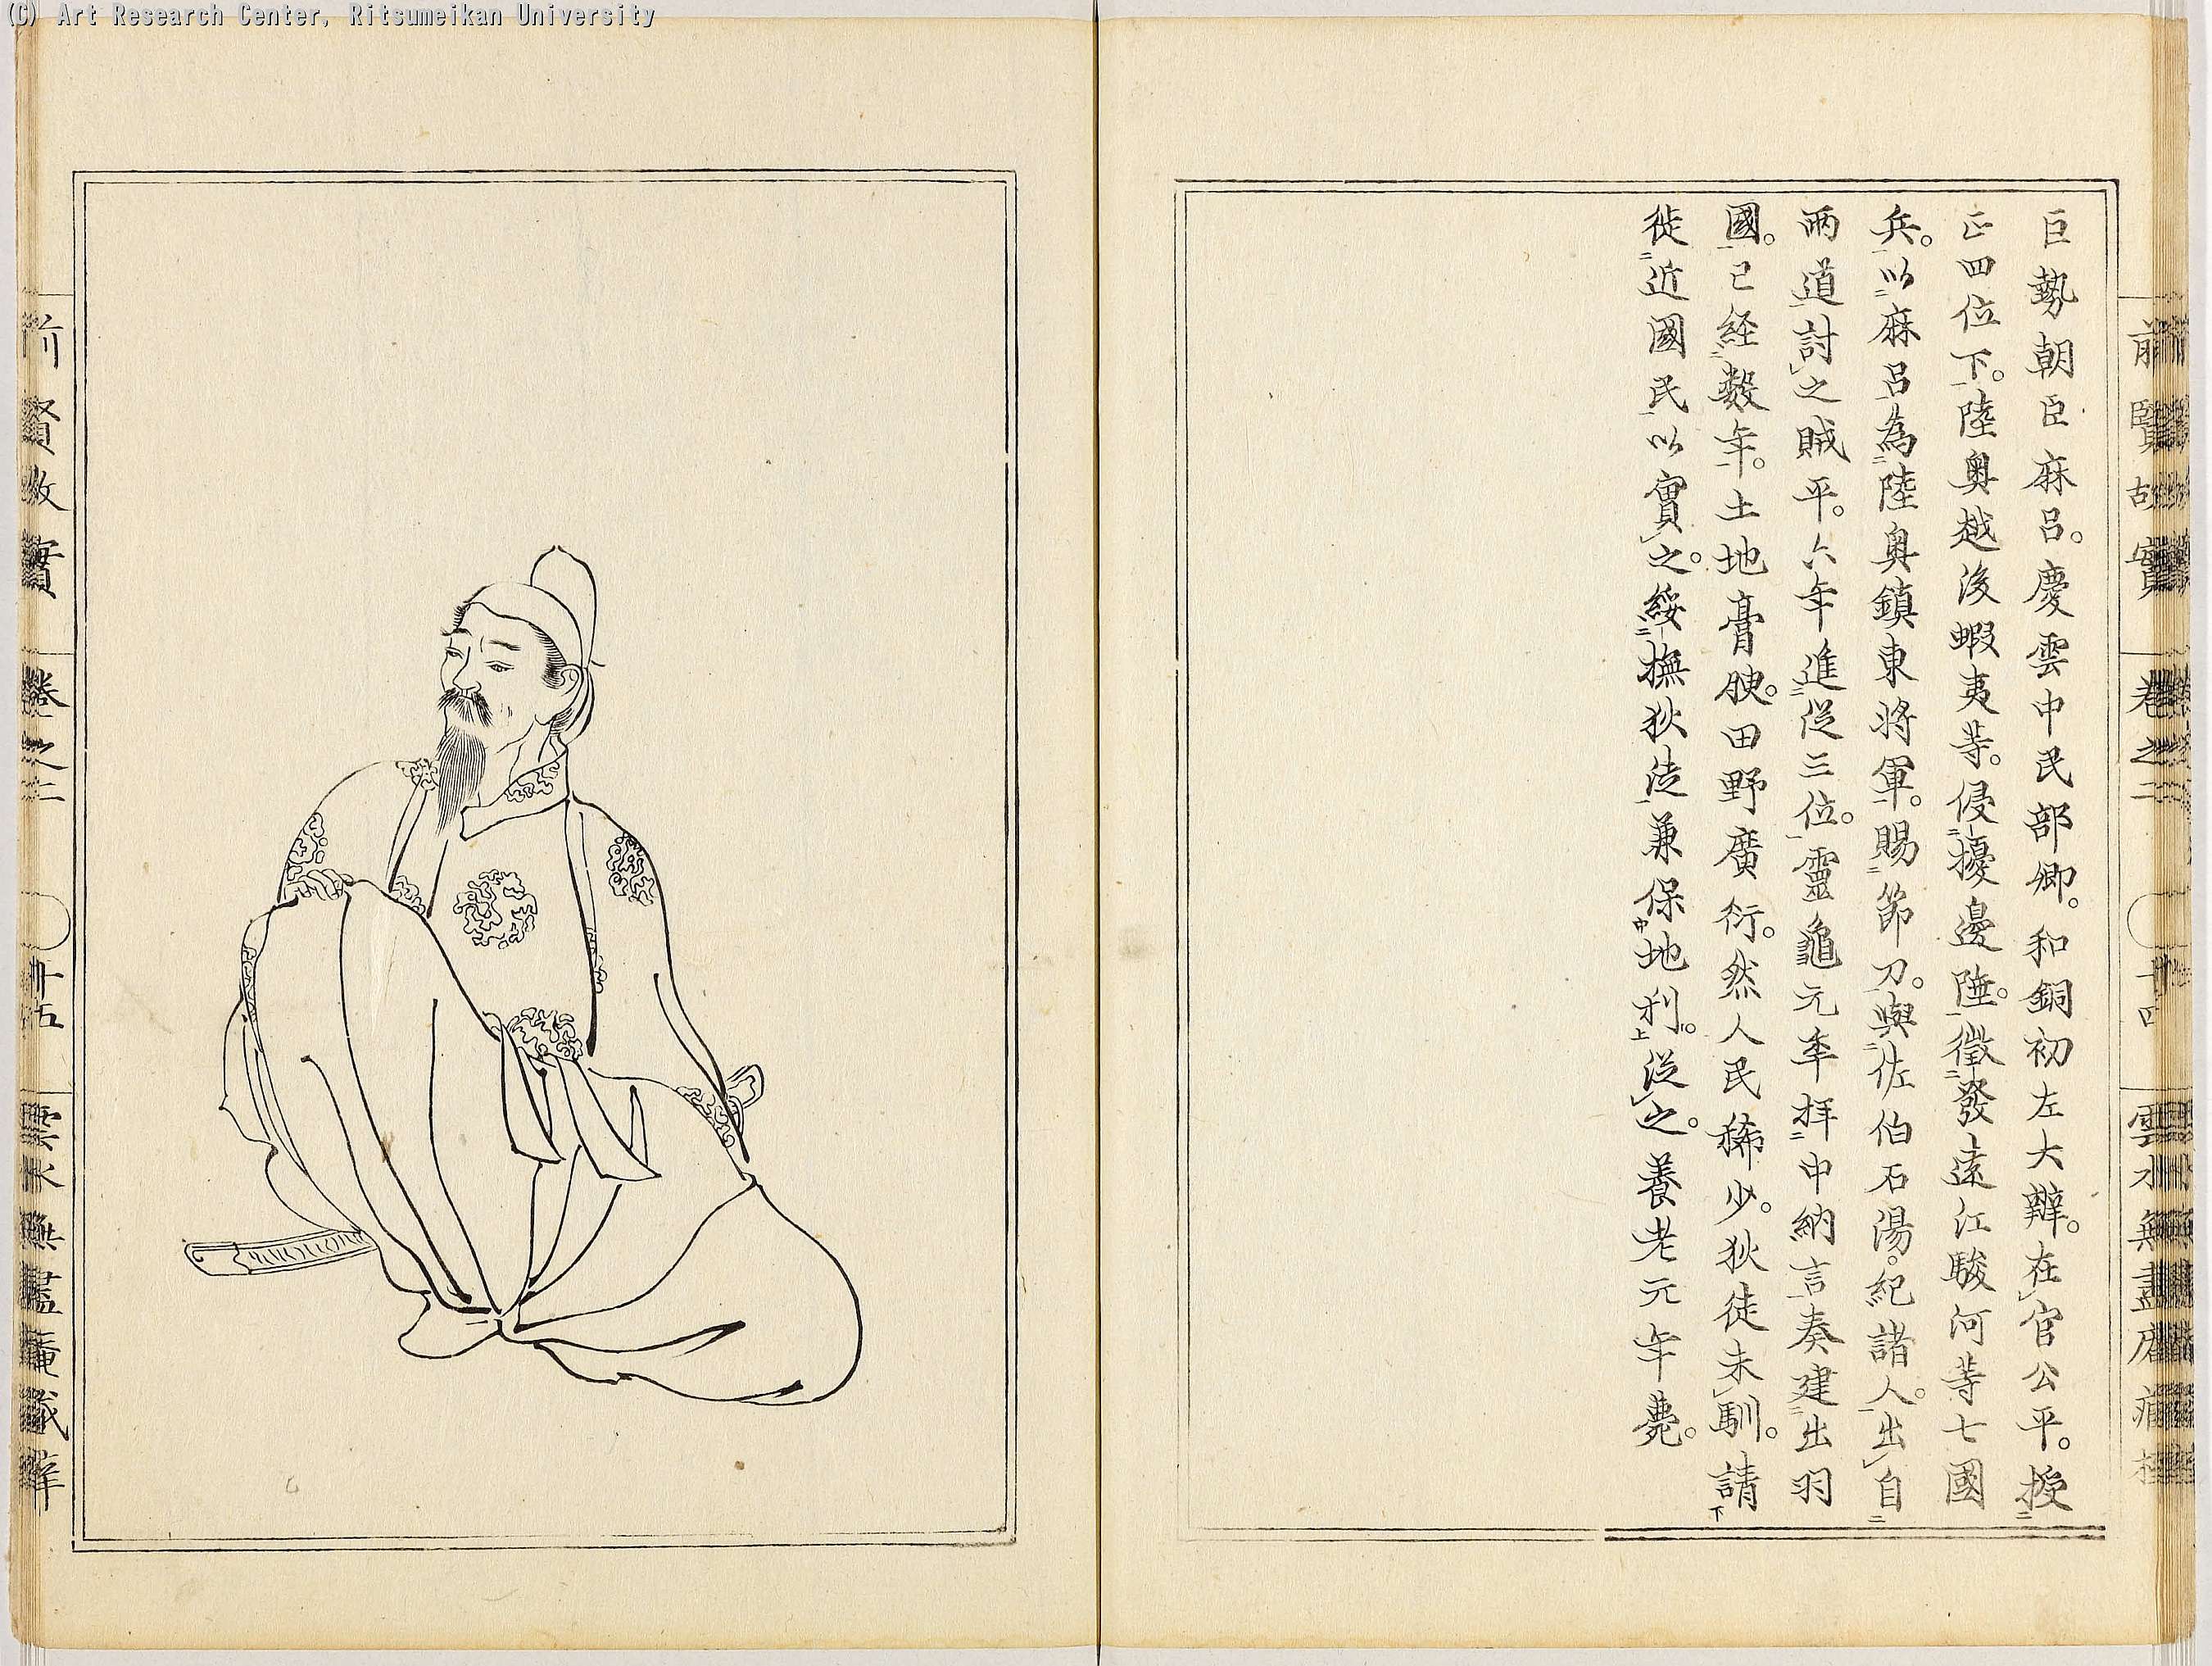 (C) Art Research Center, Ritsumeikan University
前賢故實 卷之二 十四 雲水無盡庵藏梓
巨勢朝臣麻呂。慶雲中民部卿。和銅初左大辨。在官公平。授
正四位下。陸奥越後蝦夷等。侵擾邊陲。徵發遠江駿河等七國
兵。以麻呂為陸奥鎮東將軍。賜節刀。與佐伯石湯。紀諸人。出自
兩道討之賊平。六年進従三位。靈龜元年拝中納言奏建出羽
國。已経數年。土地膏腴。田野廣衍。然人民稀少。狄徒未馴。請
徙近國民以實之。綏撫狄徒兼保地利。従之。養老元年薨。
前賢故實 卷之二 十五 雲水無盡庵藏梓